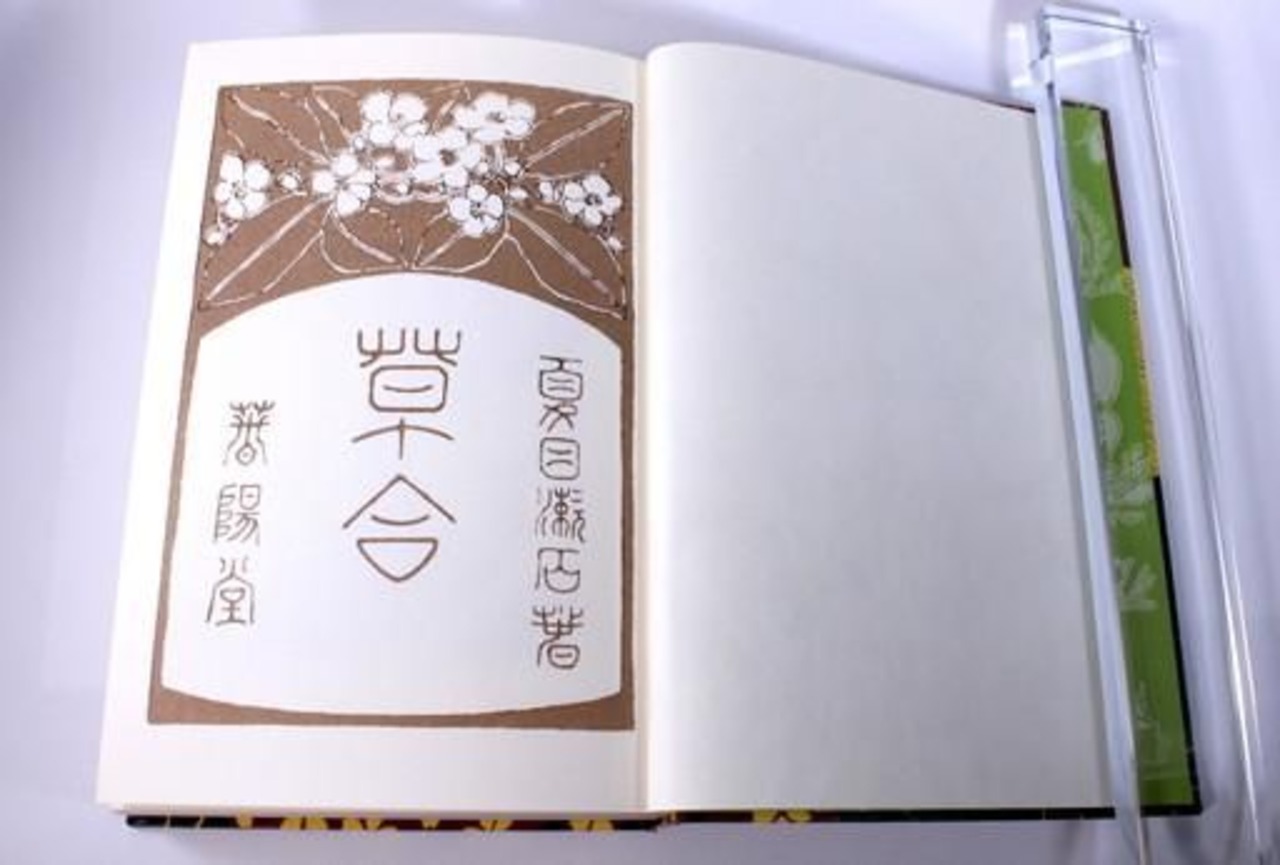 夏目漱石著
草合
春陽堂